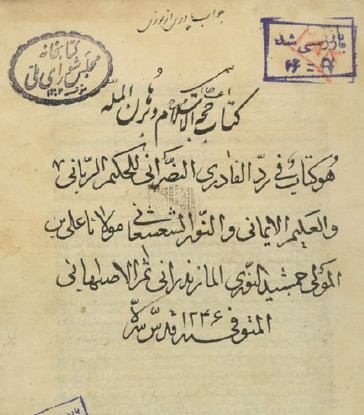 جواب پادری از نوری
کتابخانه
مجلس شورای ملی
بازرسی شد
۳۶ - ۳۷
کتاب حجج الاسلام و برهان المله
هو کتاب فی رد الفادری النصرانی للحکیم الربانی
والعلیم الایمانی والنور الشعشعانی مولانا علی بن
المولی جمشید النوری المازندرانی ثم الاصفهانی
المتوفی سنه ۱۲۴۶ قدس سره